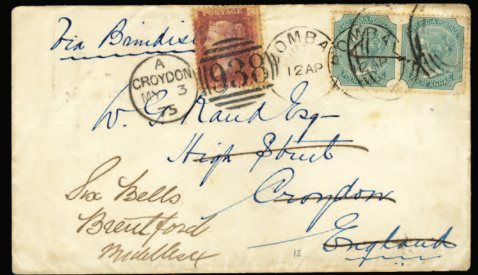 Via Brindisi
A
CROYDON
MY 3
75
938
BOMBA
12 AP
BOMBA
W. G. Rand Esq—
High Street
Croydon
England
Six Bells
Brentford
Middlesex